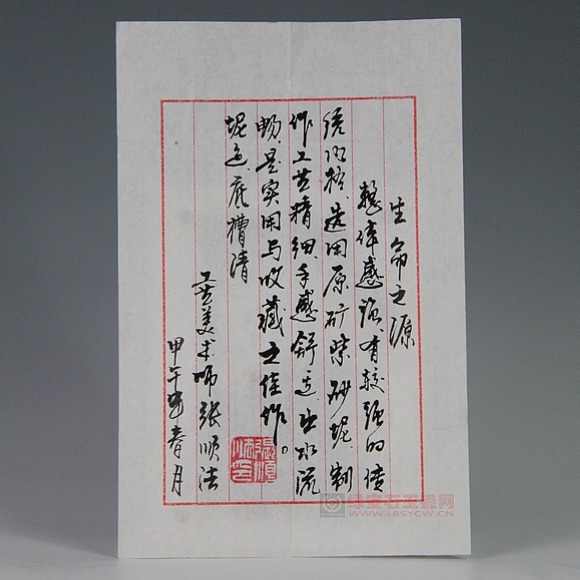 生命之源
整体感强,有较强的传
统风格,选用原矿紫砂泥,制
作工艺精细,手感舒适,出水流
畅,是实用与收藏之佳作。
泥色:底槽清
工艺美术师张顺法
甲午年春月
张顺法印
绿宝石工艺网
WWW.LBSYCW.CN